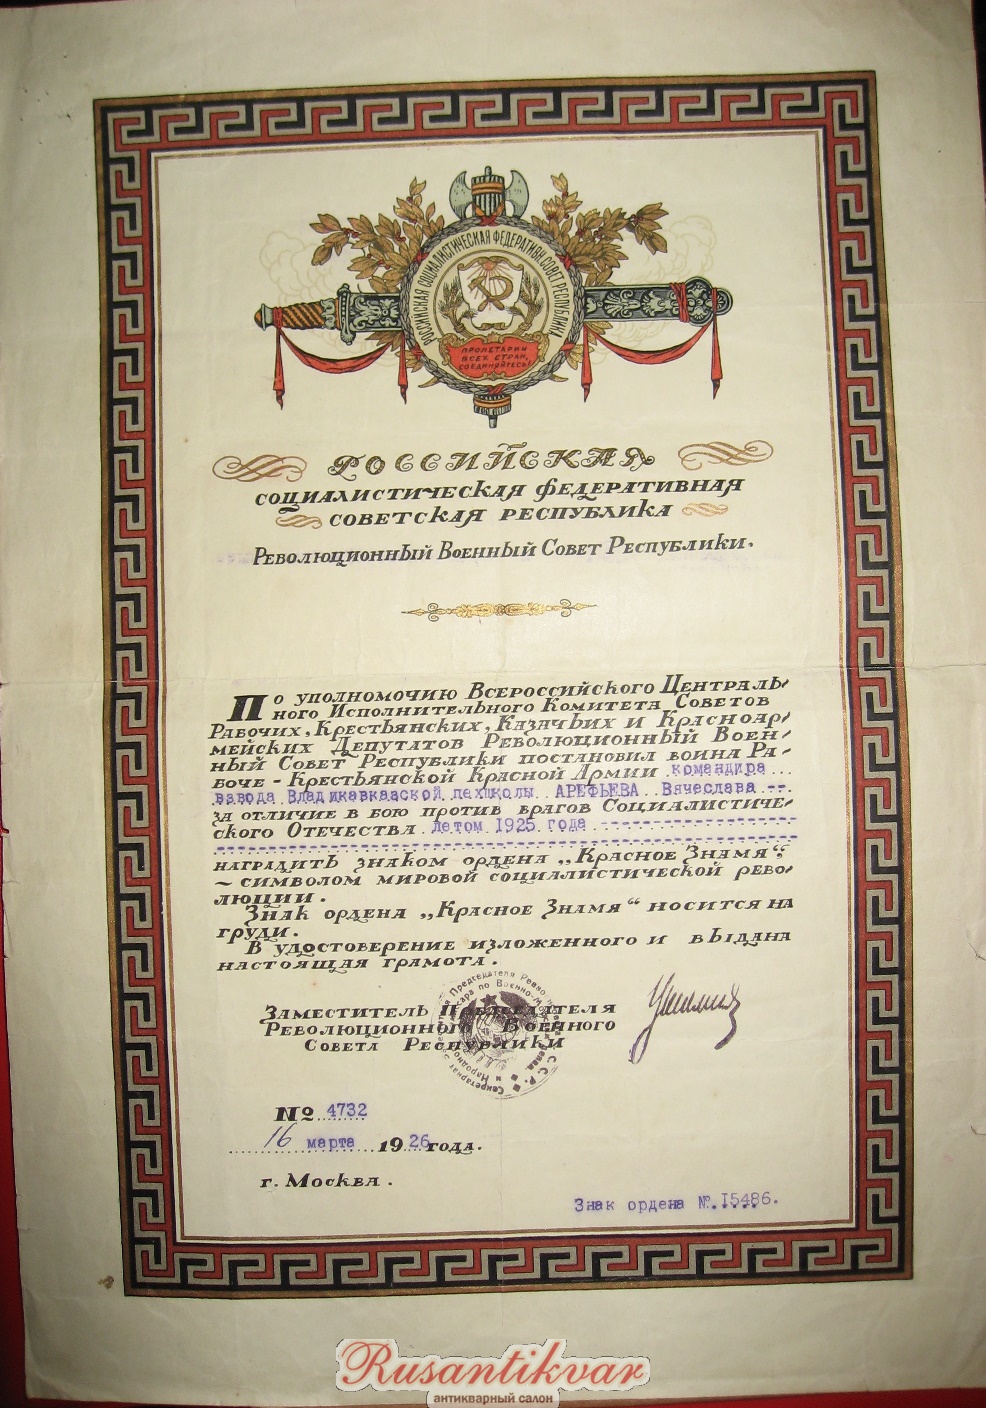 РОССИЙСКАЯ СОЦИАЛИСТИЧЕСКАЯ ФЕДЕРАТИВН. СОВЕТ. РЕСПУБЛИКА
ПРОЛЕТАРИИ
ВСЕХ СТРАН,
СОЕДИНЯЙТЕСЬ!
РОССИЙСКАЯ
СОЦИАЛИСТИЧЕСКАЯ ФЕДЕРАТИВНАЯ
СОВЕТСКАЯ РЕСПУБЛИКА
Революционный Военный Совет Республики.
По уполномочию Всероссийского Централь-
ного Исполнительного Комитета Советов
Рабочих, Крестьянских, Казачьих и Красноар-
мейских Депутатов Революционный Воен-
ный Совет Республики постановил воина Ра-
боче-Крестьянской Красной Армии командира
взвода Владикавказской пехшколы АРЕФЬЕВА Вячеслава
за отличие в бою против врагов Социалистиче-
ского Отечества летом 1925 года
наградить знаком ордена „Красное Знамя“,
— символом мировой социалистической рево-
люции.
Знак ордена „Красное Знамя“ носится на
груди.
В удостоверение изложенного и выдана
настоящая грамота.
Заместитель Председателя
Революционного Военного
Совета Республики
№ 4732
16 марта 1926 года.
г. Москва.
Знак ордена №. 15486.
Rusantikvar
антикварный салон